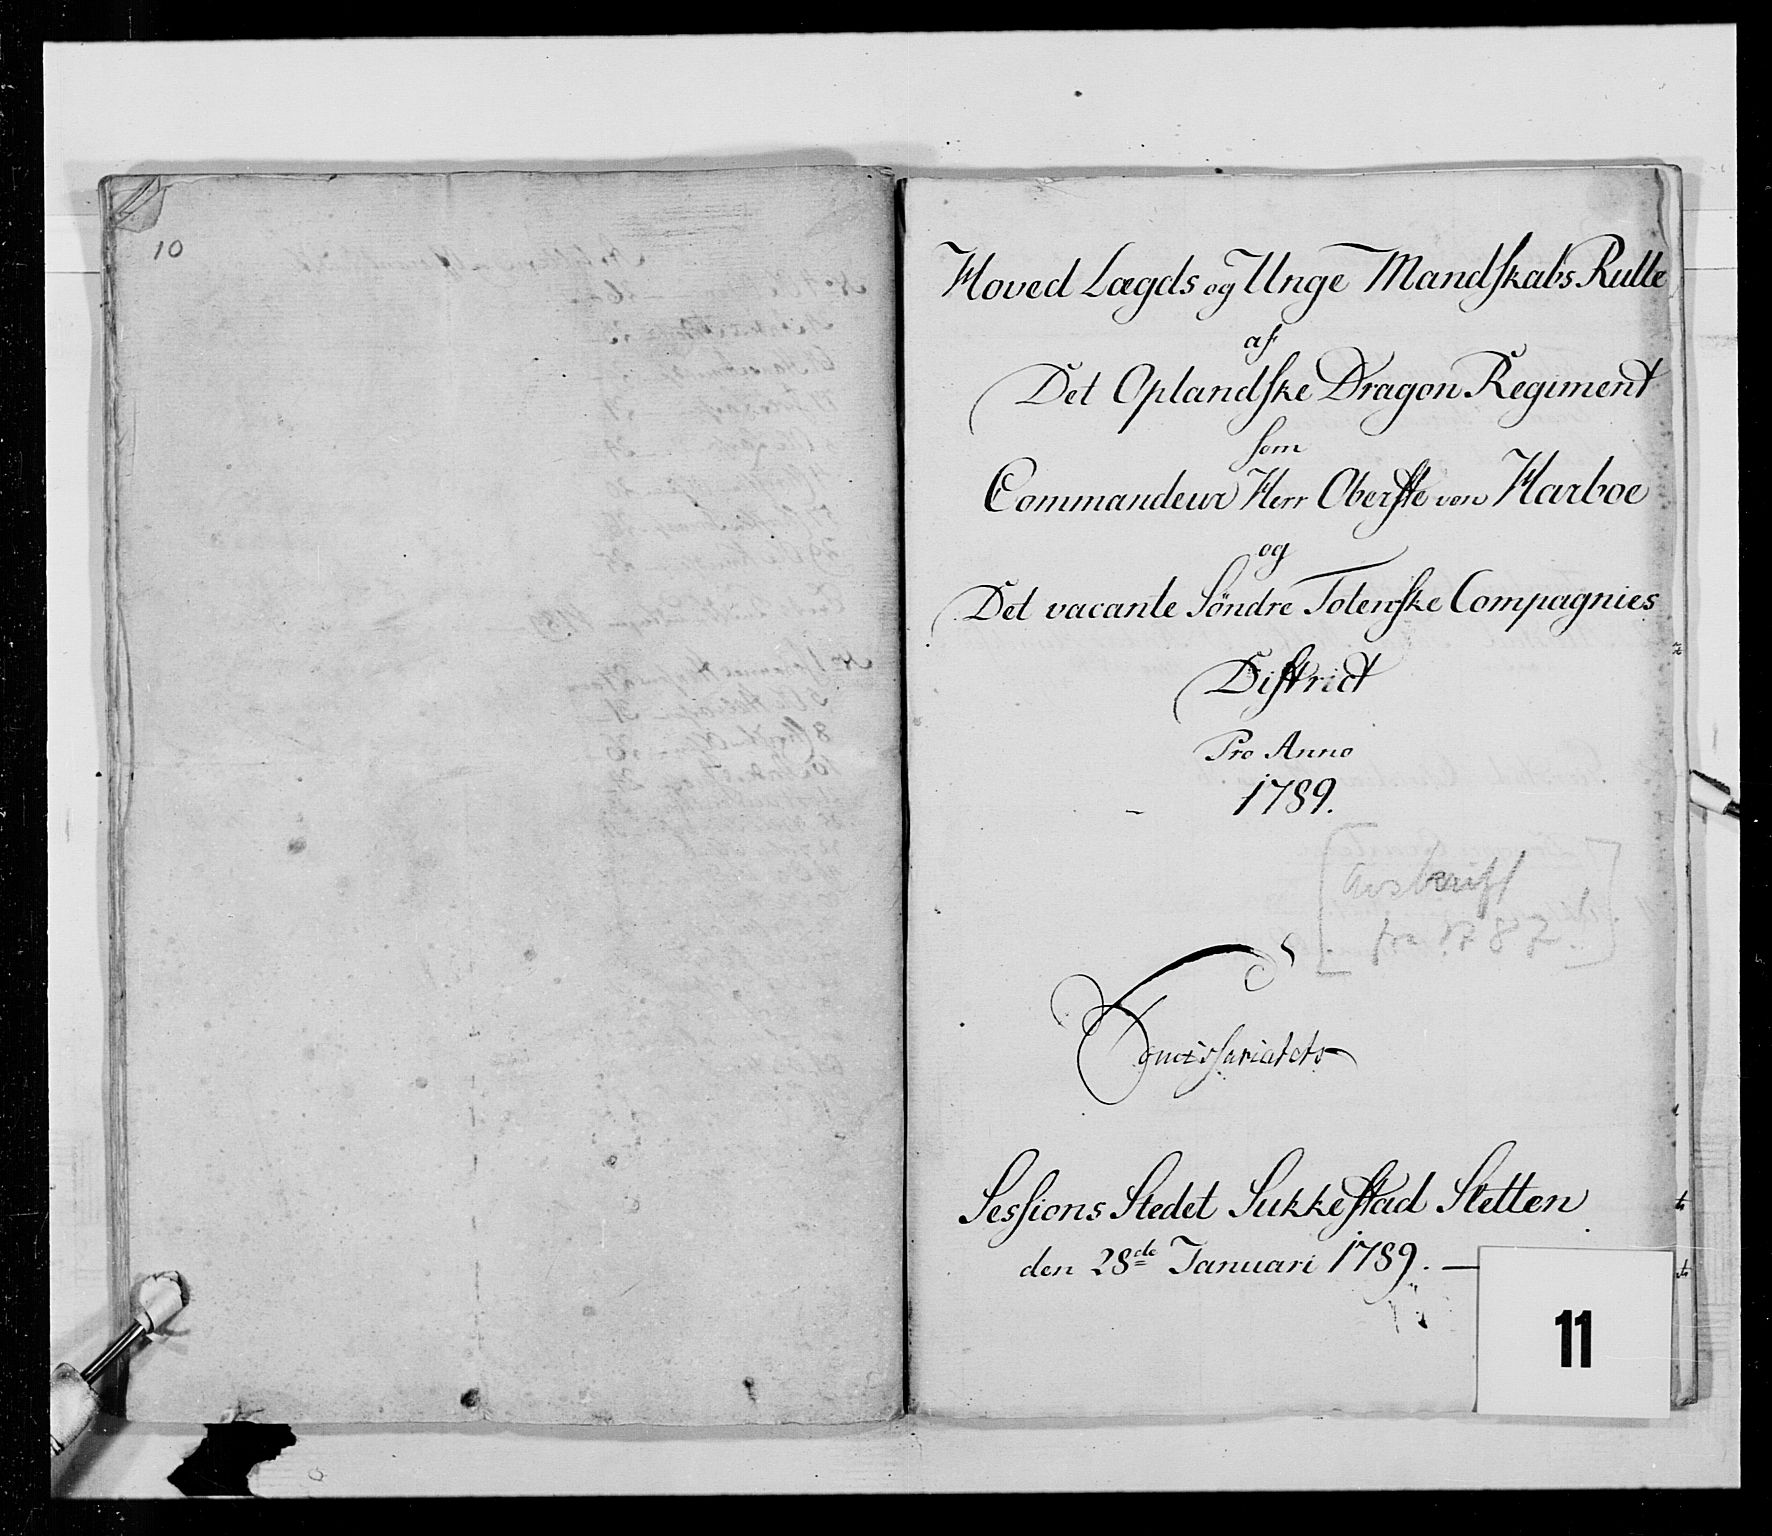 10
Hoved Lægds og Unge Mandskabs Rulle
af
Det Oplandske Dragon Regiment
som
Commandeur Herr Oberste von Harboe
og
Det vacante Söndre Totenske Compagnies
District
Pro Anno
1789.
[Avskrift
fra 1787.]
Comissariatets
Sessions Stedet Sukkestad Sletten
den 28de Januari 1789.
11